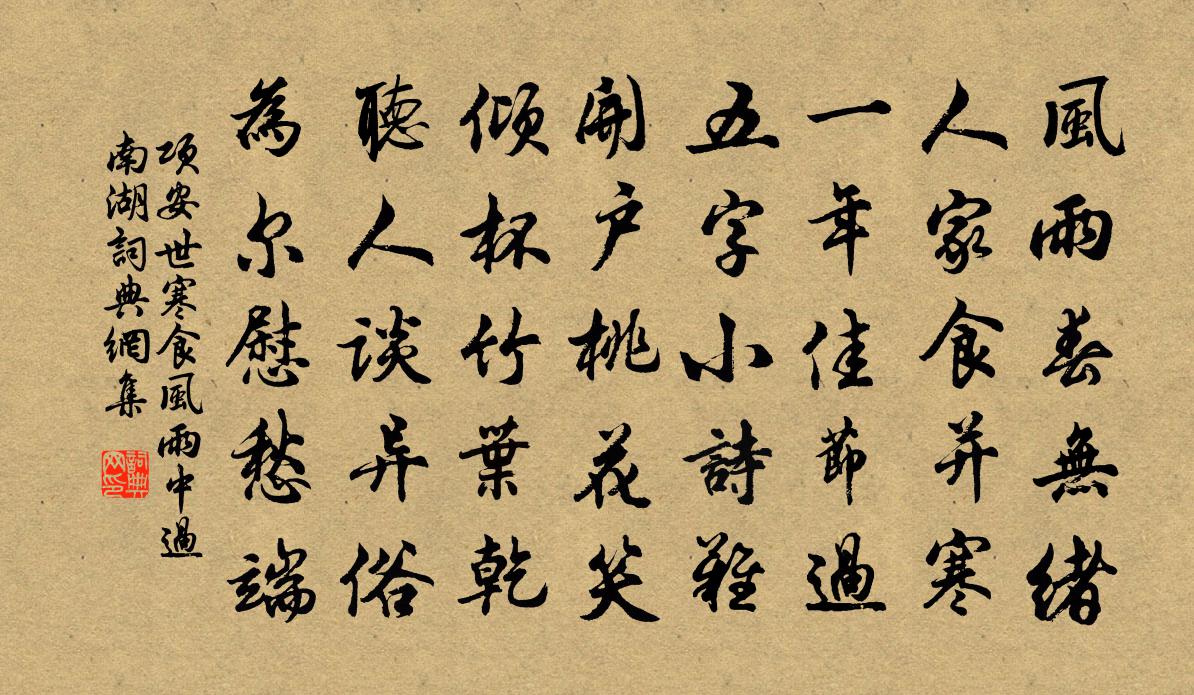 風雨春無緒
人家食并寒
一年佳節過
五字小詩難
開户桃花笑
傾杯竹葉乾
聽人談异俗
為尔慰愁端
項安世寒食風雨中過
南湖詞典網集
詞典網印